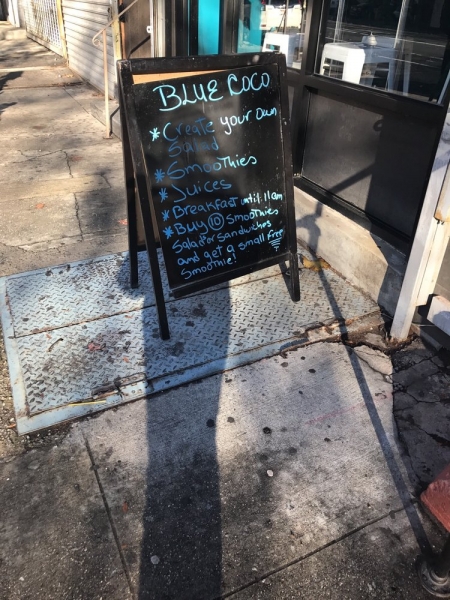 BLUE COCO
* Create your Own
Salad
* Smoothies
* Juices
* Breakfast until 11am
* Buy 10 Smoothies
Salad or Sandwiches
and get a small Free
Smoothie!